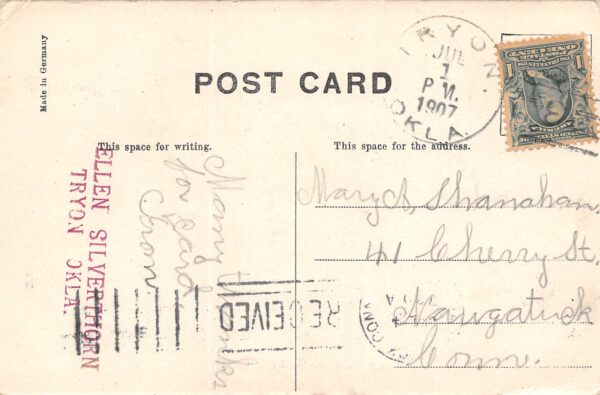 Made in Germany
POST CARD
TRYON
JUL
1
P M.
1907
OKLA.
This space for writing.
This space for the address.
ELLEN SILVERTHORN
TRYON OKLA.
Many thanks
for card
from
Mary A. Shanahan.
41 Cherry St.
Naugatuck
Conn.
RECEIVED
CONN